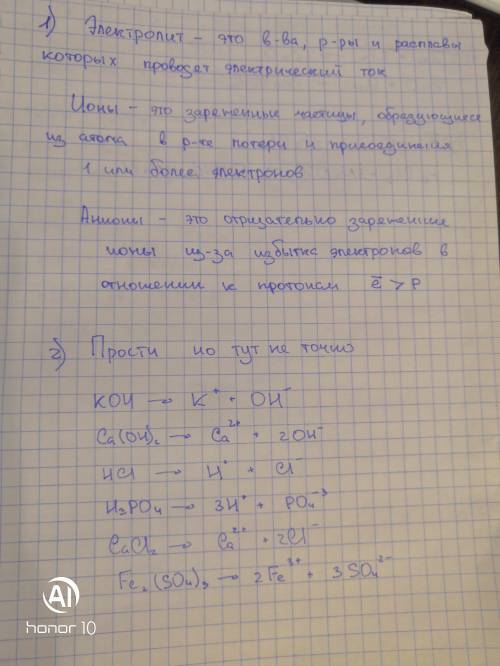 1) Электролит - это в-ва, р-ры и расплавы
которых проводет электрический ток
Ионы - это зареженные частицы, образующиеся
из атома в р-те потери и присоединения
1 или более электронов
Анионы - это отрицательно зареженные
ионы из-за избытка электронов в
отношении к протонам e̅ > P
2) Прости но тут не точно
KOH → K⁺ + OH⁻
Ca(OH)₂ → Ca²⁺ + 2OH⁻
HCl → H⁺ + Cl⁻
H₃PO₄ → 3H⁺ + PO₄⁻³
CaCl₂ → Ca²⁺ + 2Cl⁻
Fe₂(SO₄)₃ → 2Fe³⁺ + 3SO₄²⁻
AI
honor 10